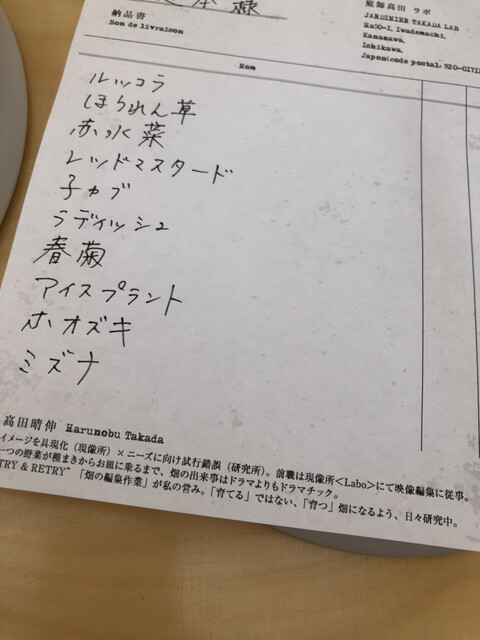 様
庭海高田 ラボ
JARDINIER TAKADA LAB
Ha50-1, Iwademachi,
Kanazawa,
Ishikawa,
Japon(code postal: 920-0171
納品書
Bon de livraison
Nom
ルッコラ
ほうれん草
赤水菜
レッドマスタード
子カブ
ラディッシュ
春菊
アイスプラント
ホオズキ
ミズナ
高田晴伸 Harunobu Takada
イメージを具現化(現像所)×ニーズに向け試行錯誤(研究所)。前職は現像所<Labo>にて映像編集に従事。
一つの野菜が種まきからお皿に乗るまで、畑の出来事はドラマよりもドラマチック。
TRY & RETRY”「畑の編集作業」が私の営み。「育てる」ではない、「育つ」畑になるよう、日々研究中。